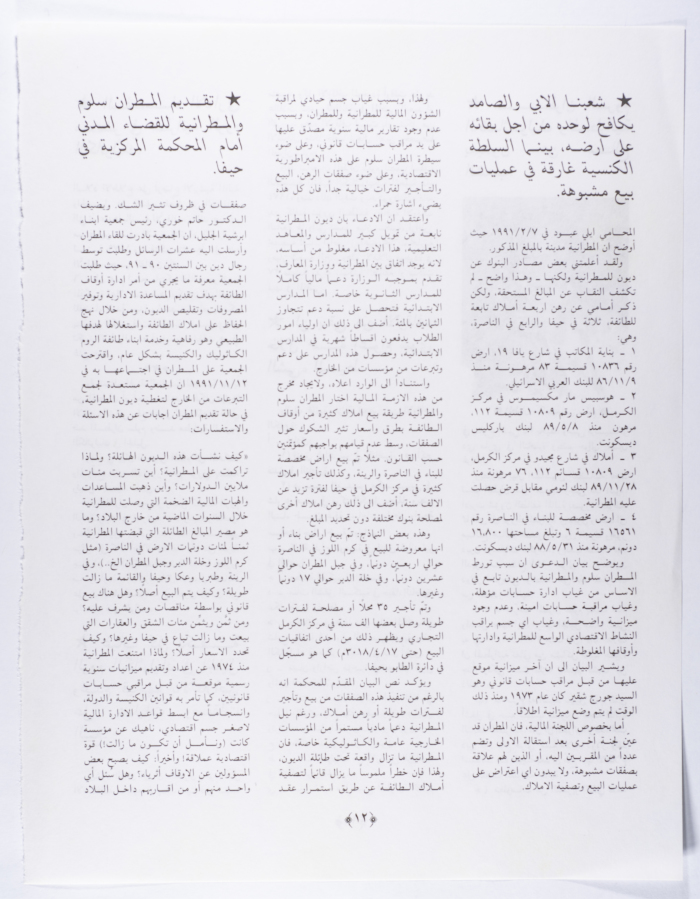 ★ شعبنا الابي والصامد
يكافح لوحده من اجل بقائه
على ارضه، بينما السلطة
الكنسية غارقة في عمليات
بيع مشبوهة.
المحامي ايلي عبود في ١٩٩١/٢/٧ حيث
أوضح ان المطرانية مدينة بالمبلغ المذكور.
ولقد أعلمتني بعض مصادر البنوك عن
ديون للمطرانية ولكنها ـ وهذا واضح ـ لم
تكشف النقاب عن المبالغ المستحقة، ولكن
ذكر أمامي عن رهن اربعة أملاك تابعة
للطائفة، ثلاثة في حيفا والرابع في الناصرة،
وهي:
١ ـ بناية المكاتب في شارع يافا ١٩، ارض
رقم ١٠٨٣٦ قسيمة ٨٣ مرهونة منذ
٨٦/١١/٩ للبنك العربي الاسرائيلي.
٢ ـ هوسبيس مار مكسيموس في مركز
الكرمل، ارض رقم ١٠٨٠٩ قسيمة ١١٢،
مرهون منذ ٨٩/٥/٨ لبنك باركليس
ديسكونت.
٣ ـ أملاك في شارع مجيدو في مركز الكرمل،
ارض ١٠٨٠٩ قسائم ١١٢، ٧٦ مرهونة منذ
٨٩/١١/٢٨ لبنك لئومي مقابل قرض حصلت
عليه المطرانية.
٤ ـ ارض مخصصة للبناء في الناصرة رقم
١٦٥٦١ قسيمة ٦ وتبلغ مساحتها ١٦,٨٠٠
دونم، مرهونة منذ ٨٨/٥/٣١ لبنك ديسكونت.
ويوضح بيان الدعوى ان سبب تورط
المطران سلوم والمطرانية بالديون تابع في
الاساس من غياب ادارة حسابات مؤهلة،
وغياب مراقبة حسابات امينة، وعدم وجود
ميزانية واضحة، وغياب اي جسم يراقب
النشاط الاقتصادي الواسع للمطرانية وادارتها
وأوقافها المغلوطة.
ويشير البيان الى ان أخر ميزانية موقع
عليها من قبل مراقب حسابات قانوني وهو
السيد جورج شقير كان عام ١٩٧٣ ومنذ ذلك
الوقت لم يتم وضع ميزانية اطلاقاً.
أما بخصوص اللجنة المالية، فان المطران قد
عيّن لجنة أخرى بعد استقالة الاولى وتضم
عدداً من المقربين اليه، أو الذين لهم علاقة
بصفقات مشبوهة، ولا يبدون اي اعتراض على
عمليات البيع وتصفية الاملاك.
ولهذا، وبسبب غياب جسم حيادي لمراقبة
الشؤون المالية للمطرانية وللمطران، وبسبب
عدم وجود تقارير مالية سنوية مصدّق عليها
على يد مراقب حسابات قانوني، وعلى ضوء
سيطرة المطران سلوم على هذه الامبراطورية
الاقتصادية، وعلى ضوء صفقات الرهن، البيع
والتأجير لفترات خيالية جداً، فان كل هذه
يضيء اشارة حمراء.
واعتقد ان الادعاء بان ديون المطرانية
نابعة من تمويل كبير للمدارس والمعاهد
التعليمية، هذا الادعاء مغلوط من أساسه،
لانه يوجد اتفاق بين المطرانية ووزارة المعارف،
تقدم بموجبه الوزارة دعماً مالياً كاملاً
للمدارس الثانوية خاصة. اما المدارس
الابتدائية فتحصل على نسبة دعم تتجاوز
الثمانين بالمئة. أضف الى ذلك ان اولياء امور
الطلاب يدفعون اقساطاً شهرية في المدارس
الابتدائية، وحصول هذه المدارس على دعم
وتبرعات من مؤسسات من الخارج.
واستناداً الى الوارد اعلاه، ولايجاد مخرج
من هذه الازمة المالية اختار المطران سلوم
والمطرانية طريقة بيع املاك كثيرة من أوقاف
الطائفة بطرق وأسعار تثير الشكوك حول
الصفقات، وسط عدم قيامهم بواجبهم كمؤتمنين
حسب القانون. مثلاً تمّ بيع اراض مخصصة
للبناء في الناصرة والرينة، وكذلك تأجير املاك
كثيرة في مركز الكرمل في حيفا لفترة تزيد عن
الالف سنة، أضف الى ذلك رهن املاك أخرى
لمصلحة بنوك مختلفة دون تحديد المبلغ.
وهذه بعض النماذج: تمّ بيع اراض بناء أو
انها معروضة للبيع في كرم اللوز في الناصرة
حوالي اربعين دونما، وفي جبل المطران حوالي
عشرين دونما، وفي خلة الدير حوالي ١٧ دونما
وغيرها.
وتمّ تأجير ٣٥ محلاً أو مصلحة لفترات
طويلة وصل بعضها الف سنة في مركز الكرمل
التجاري ويظهر ذلك من احدى اتفاقيات
البيع (حتى ٣٠١٨/٤/١٧م) كما هو مسجّل
في دائرة الطابو بحيفا.
ويؤكد نص البيان المقدّم للمحكمة انه
بالرغم من تنفيذ هذه الصفقات من بيع وتأجير
لفترات طويلة أو رهن أملاك، ورغم نيل
المطرانية دعماً مادياً مستمراً من المؤسسات
الخارجية عامة والكاثوليكية خاصة، فان
المطرانية ما تزال واقعة تحت طائلة الديون،
ولهذا فان خطراً ملموساً ما يزال قائماً لتصفية
أملاك الطائفة عن طريق استمرار عقد
★ تقديم المطران سلوم
والمطرانية للقضاء المدني
أمام المحكمة المركزية في
حيفا.
صفقات في ظروف تثير الشك. ويضيف
الدكتور حاتم خوري، رئيس جمعية ابناء
ابرشية الجليل، ان الجمعية بادرت للقاء المطران
وأرسلت اليه عشرات الرسائل وطلبت توسط
رجال دين بين السنتين ٩٠ ـ ٩١، حيث طلبت
الجمعية معرفة ما يجري من أمر ادارة أوقاف
الطائفة بهدف تقديم المساعدة الادارية وتوفير
المصروفات وتقليص الديون، ومن خلال نهج
الحفاظ على املاك الطائفة واستغلالها لهدفها
الطبيعي وهو رفاهية وخدمة ابناء طائفة الروم
الكاثوليك والكنيسة بشكل عام. واقترحت
الجمعية على المطران في اجتماعها به في
١٩٩١/١١/١٢ ان الجمعية مستعدة لجمع
التبرعات من الخارج لتغطية ديون المطرانية،
في حالة تقديم المطران اجابات عن هذه الاسئلة
والاستفسارات:
«كيف نشأت هذه الديون الهائلة؟ ولماذا
تراكمت على المطرانية؟ أين تسربت مئات
ملايين الدولارات؟ وأين ذهبت المساعدات
والهبات المالية الضخمة التي وصلت للمطرانية
خلال السنوات الماضية من خارج البلاد؟ وما
هو مصير المبالغ الطائلة التي قبضتها المطرانية
ثمناً لمئات دونمات الارض في الناصرة (مثل
كرم اللوز وخلة الدير وجبل المطران الخ..)، وفي
الرينة وطبريا وعكا وحيفا والقائمة ما زالت
طويلة؟ وكيف يتم البيع أصلاً؟ وهل هناك بيع
قانوني بواسطة مناقصات ومن يشرف عليه؟
ومن ثمن ويثمّن مئات الشقق والعقارات التي
بيعت وما زالت تباع في حيفا وغيرها؟ وكيف
تحدد الاسعار أصلاً؟ ولماذا امتنعت المطرانية
منذ ١٩٧٤ عن اعداد وتقديم ميزانيات سنوية
رسمية موقعة من قبل مراقبي حسابات
قانونيين، كما تأمر به قوانين الكنيسة والدولة،
وانسجاماً مع ابسط قواعد الادارة المالية
لاصغر جسم اقتصادي، ناهيك عن مؤسسة
كانت (ونأمل أن تكون ما زالت!) قوة
اقتصادية عملاقة؟ وأخيراً، كيف يصبح بعض
المسؤولين عن الاوقاف أثرياء؟ وهل سُئل أي
واحد منهم أو من اقاربهم داخل البلاد
﴿١٢﴾